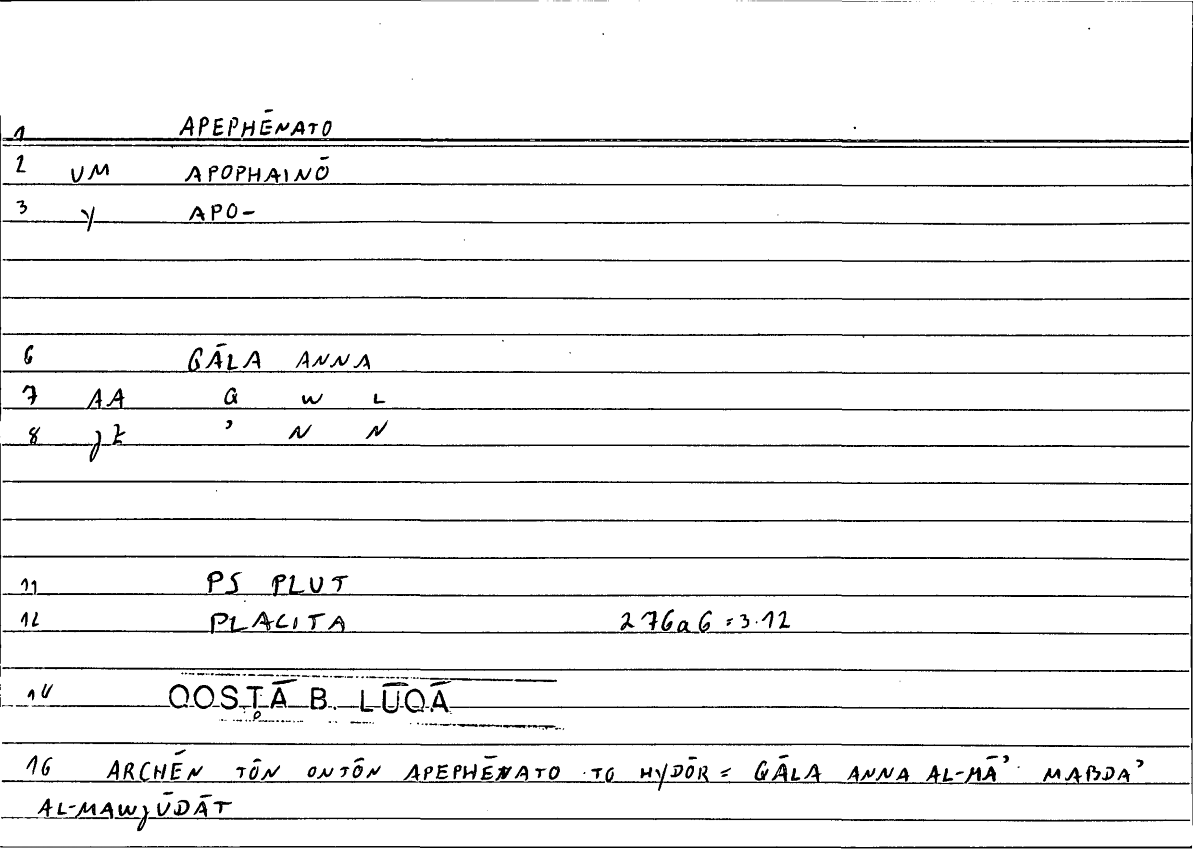 1 APEPHĒNATO
2 VM APOPHAINŌ
3 y APO-
6 QĀLA ANNA
7 AA Q W L
8 jt ʾ N N
11 PS PLUT
12 PLACITA 276a6 = 3.12
14 QOSṬĀ B. LŪQĀ
16 ARCHĒN TŌN ONTŌN APEPHĒNATO TO HYDŌR = QĀLA ANNA AL-MĀʾ MABDAʾ
AL-MAWjŪDĀT